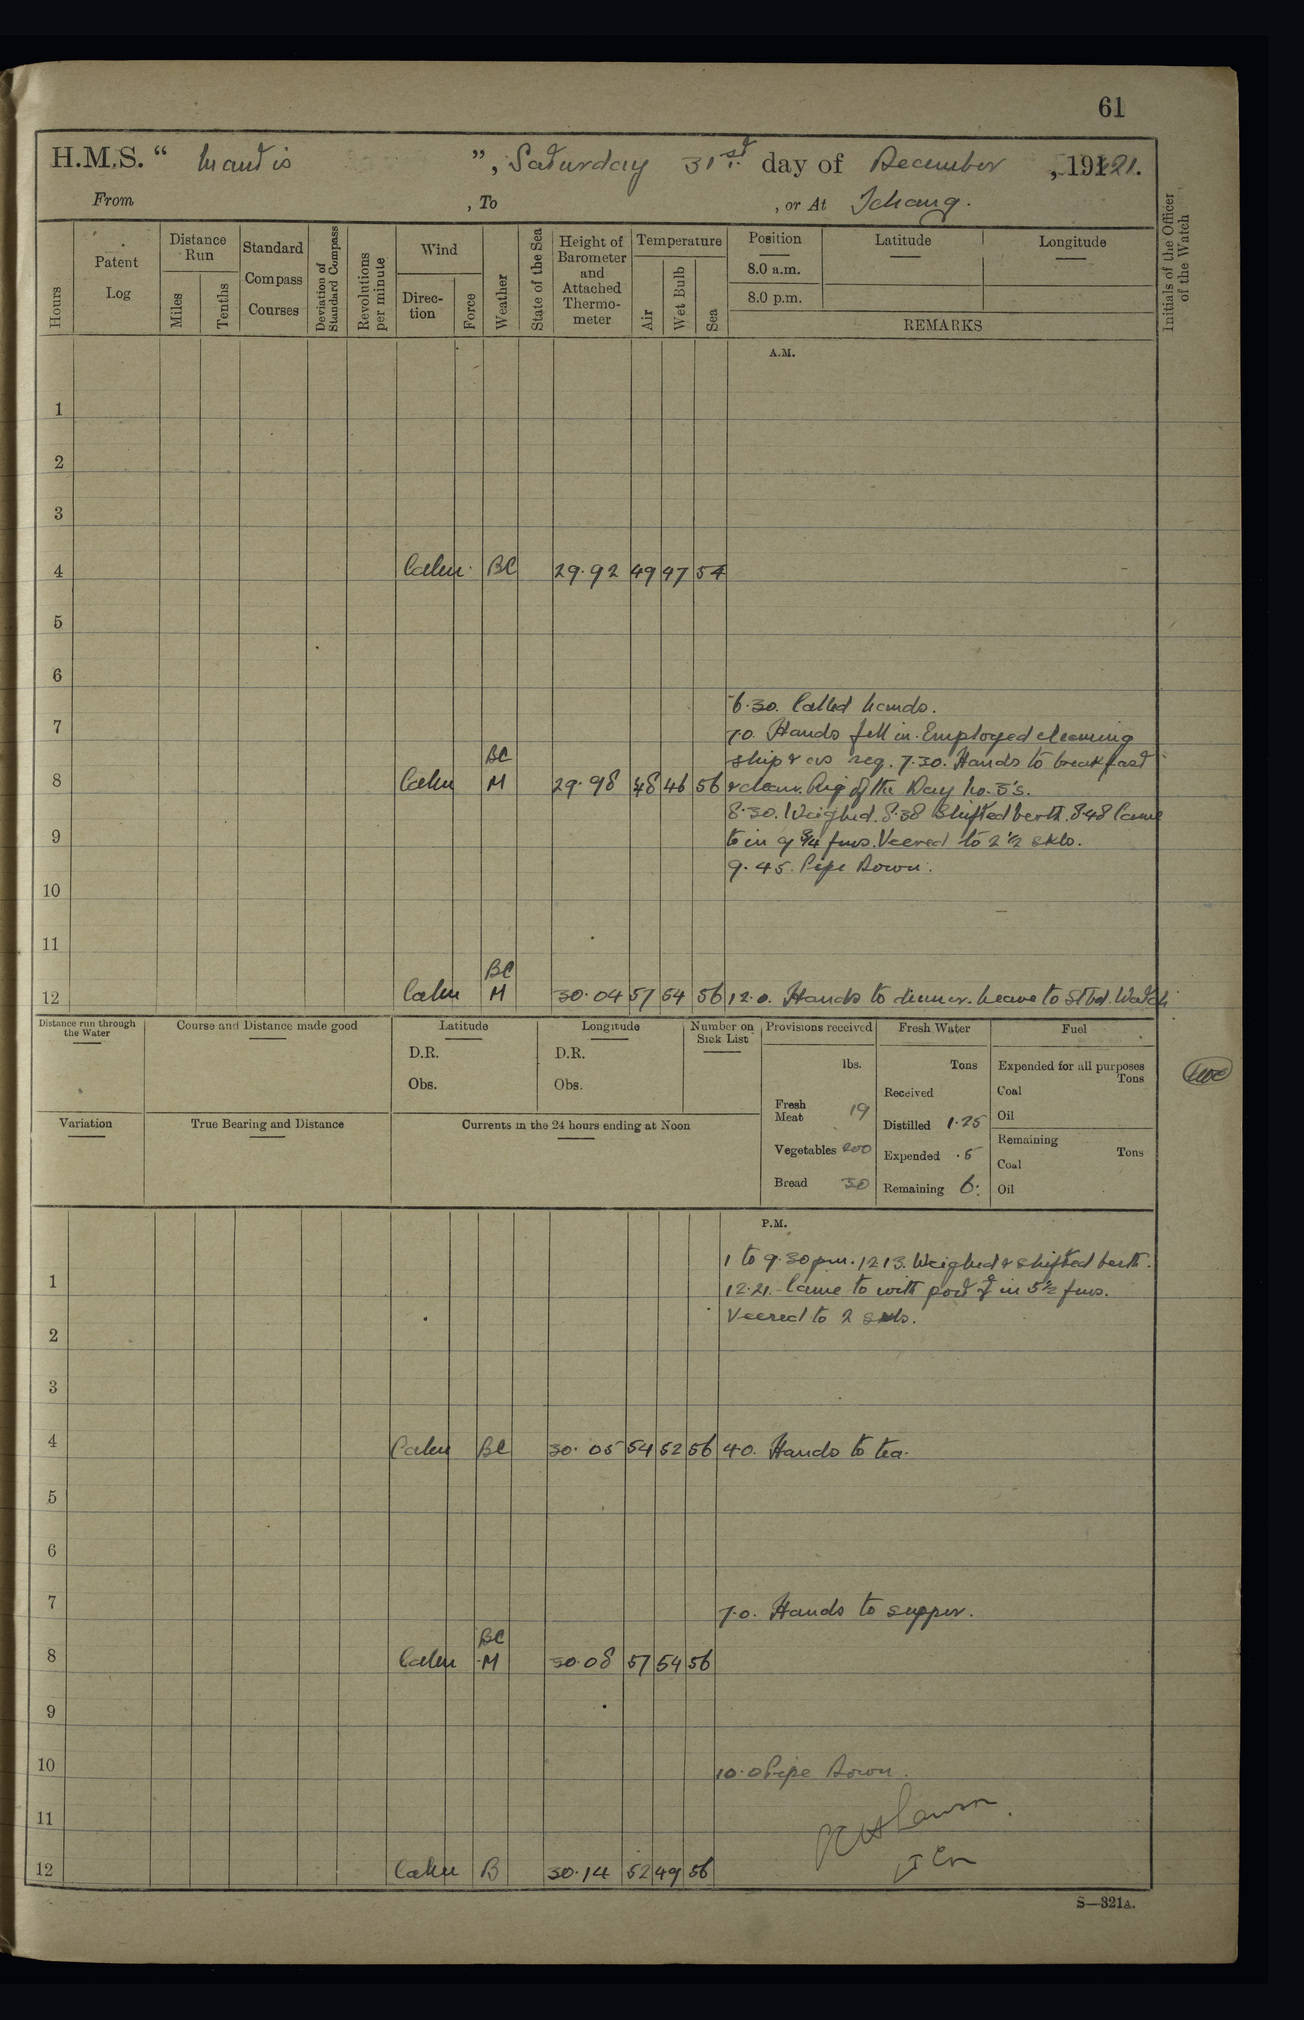 61
H.M.S. “ Mantis ”, Saturday 31st. day of December, 1921.
From , To , or At Ichang.
Hours
Patent Log
Distance Run
Miles
Tenths
Standard Compass Courses
Deviation of Standard Compass
Revolutions per minute
Wind
Direc-tion
Force
Weather
State of the Sea
Height of Barometer and Attached Thermo-meter
Temperature
Air
Wet Bulb
Sea
Position
8.0 a.m.
8.0 p.m.
Latitude
Longitude
REMARKS
Initials of the Officer of the Watch
A.M.
1
2
3
4 Calm BC 29.92 49 47 54
5
6
6.30. Called hands.
7 7.0. Hands fell in. Employed cleaning
BC ship & as req. 7.30. Hands to breakfast
8 Calm M 29.98 48 46 56 & clean. Rig of the Day No. 5's.
8.30. Weighed. 8.38 Shifted berth. 8.48 Came
9 to in 9 3/4 fms. Veered to 2 1/2 skls.
9.45. Pipe Down.
10
11
BC
12 Calm M 30.04 57 54 56 12.0. Hands to dinner. Leave to Stbd. Watch
Distance run through the Water
Course and Distance made good
Latitude
D.R.
Obs.
Longitude
D.R.
Obs.
Number on Sick List
Provisions received
lbs.
Fresh Meat 19
Vegetables 200
Bread 30
Fresh Water
Tons
Received
Distilled 1.25
Expended .5
Remaining 6.
Fuel
Expended for all purposes
Tons
Coal
Oil
Remaining
Tons
Coal
Oil
Variation
True Bearing and Distance
Currents in the 24 hours ending at Noon
P.M.
1 to 9.30 pm. 12.13. Weighed & shifted berth.
1 12.21. Came to with port in 5 1/2 fms.
Veered to 2 skls.
2
3
4 Calm BC 30.05 54 52 56 4.0. Hands to tea.
5
6
7 7.0. Hands to supper.
BC
8 Calm M 30.08 57 54 56
9
10 10.0 Pipe Down.
11
12 Calm B 30.14 52 49 56
S—321A.